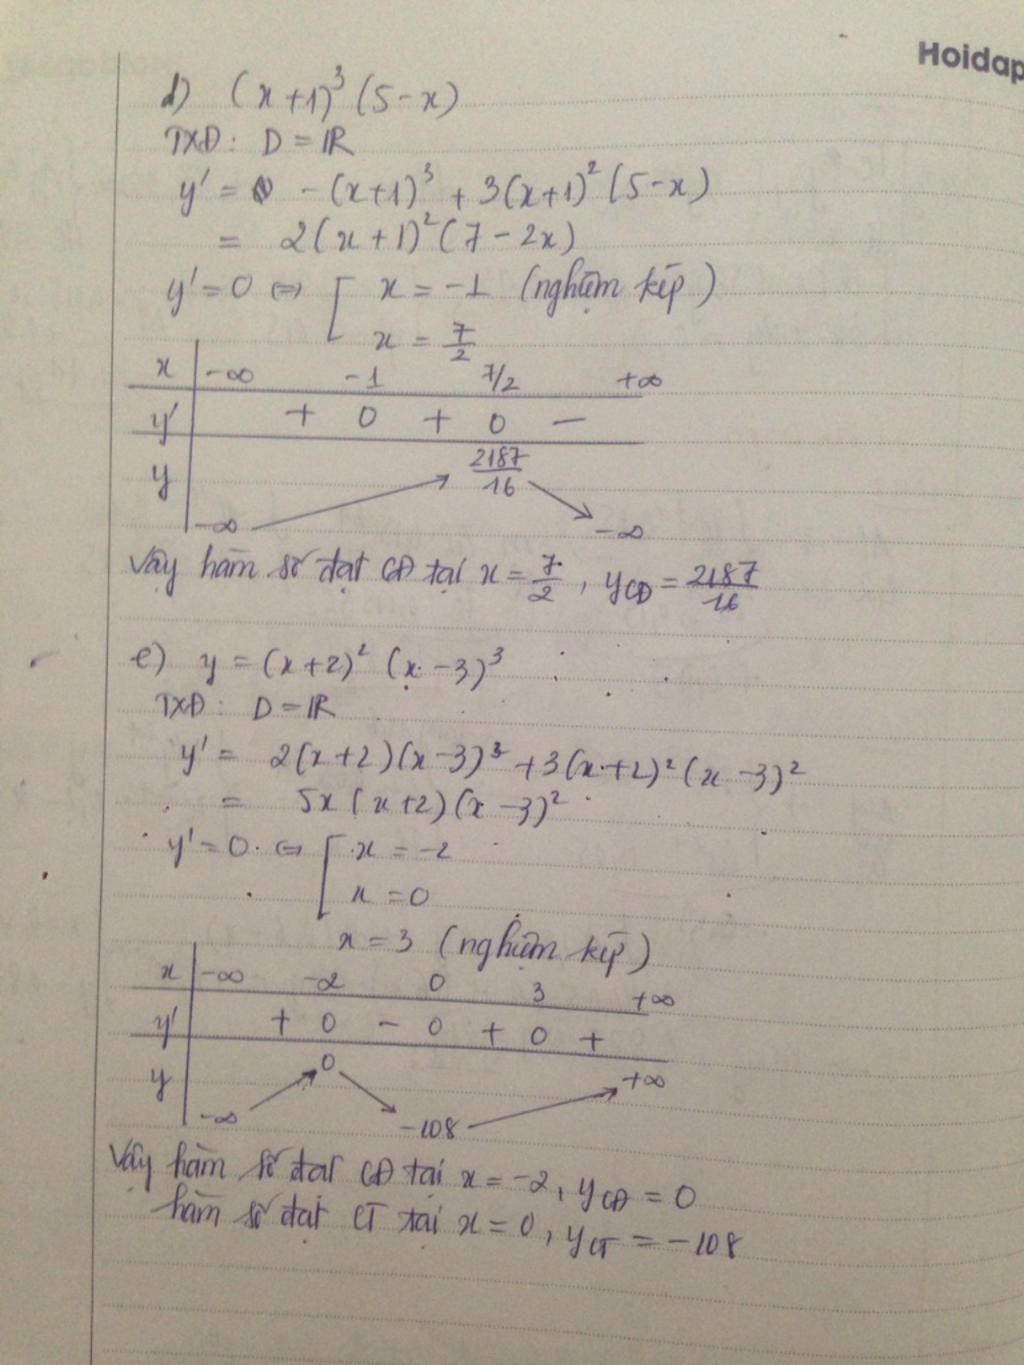 Hoidap
d) (x+1)³(5-x)
TXĐ: D = ℝ
y' = -(x+1)³ + 3(x+1)²(5-x)
= 2(x+1)²(7-2x)
y'=0 ⇔ [ x = -1 (nghiệm kép)
x = 7/2
x | -∞ -1 7/2 +∞
y' | + 0 + 0 -
y | -∞ 2187/16 -∞
Vậy hàm số đạt CĐ tại x = 7/2, yCĐ = 2187/16
e) y = (x+2)²(x-3)³
TXĐ: D = ℝ
y' = 2(x+2)(x-3)³ + 3(x+2)²(x-3)²
= 5x(x+2)(x-3)²
y'=0 ⇔ [ x = -2
x = 0
x = 3 (nghiệm kép)
x | -∞ -2 0 3 +∞
y' | + 0 - 0 + 0 +
y | -∞ 0 -108 +∞
Vậy hàm số đạt CĐ tại x = -2, yCĐ = 0
hàm số đạt CT tại x = 0, yCT = -108